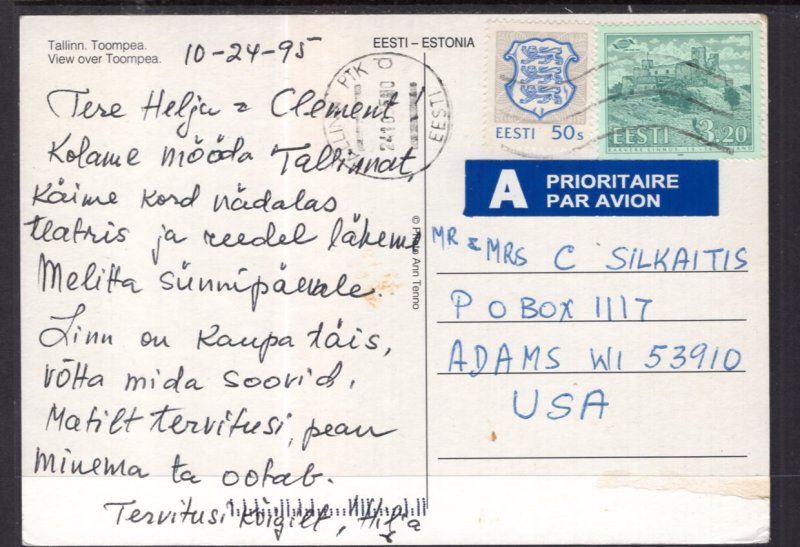 Tallinn. Toompea.
View over Toompea.
10-24-95
EESTI – ESTONIA
Tere Helja & Clement!
Kolame mööda Tallinnat,
Käime kord nädalas
teatris ja reedel lähme
Melitta Sünnipäevale.
Linn on kaupa täis,
võtta mida soovid.
Matilt tervitusi, pean
minema ta ootab.
Tervitusi kõigilt,
© Photo Ann Tenno
TALLINN PTK
EESTI
EESTI 50s
EESTI 3.20
A PRIORITAIRE
PAR AVION
MR & MRS C SILKAITIS
P O BOX 1117
ADAMS WI 53910
USA